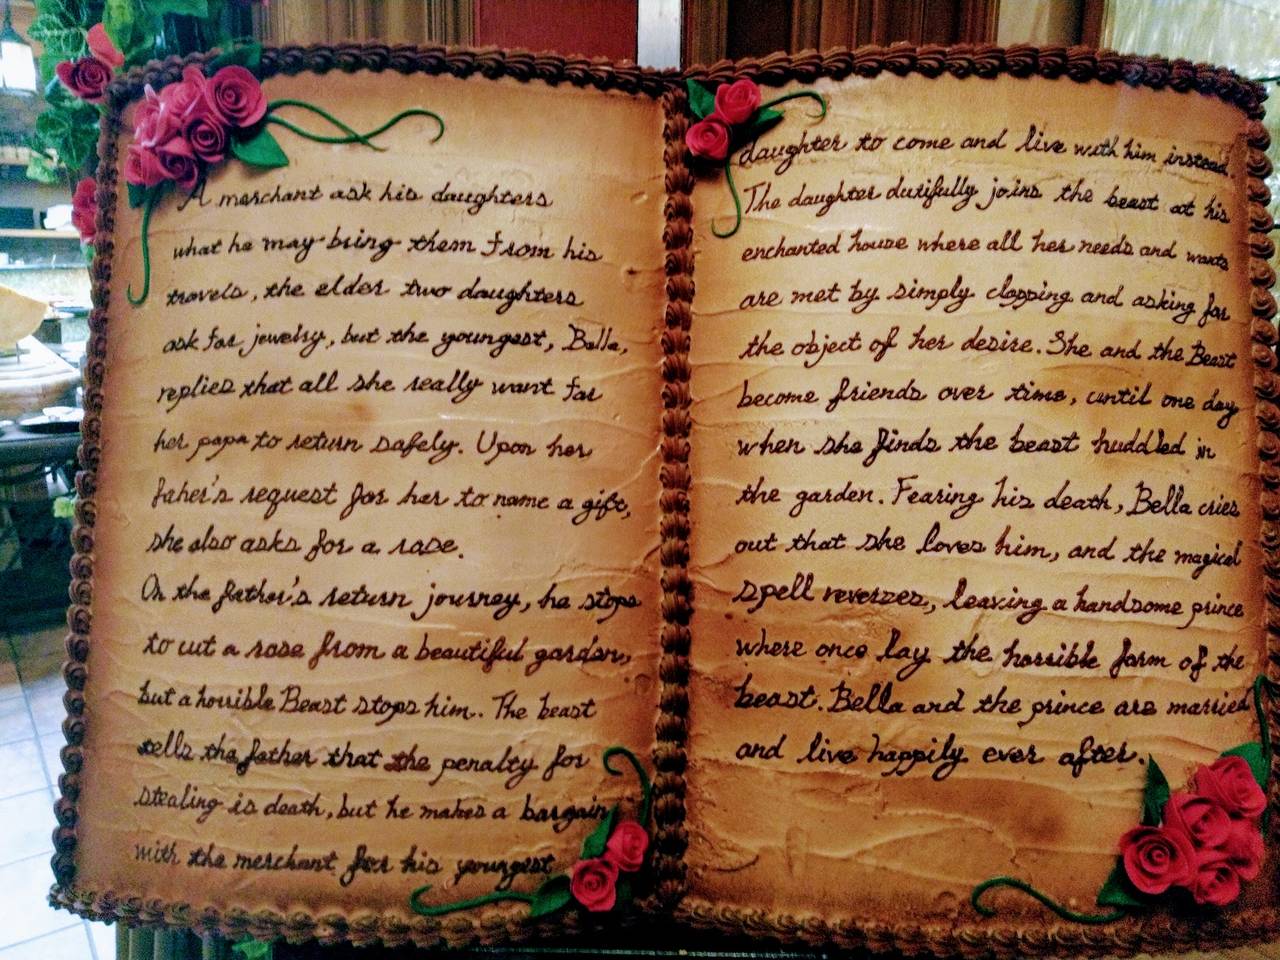 A merchant ask his daughters
what he may bring them from his
travels, the elder two daughters
ask for jewelry, but the youngest, Bella,
replies that all she really want for
her papa to return safely. Upon her
faher's request for her to name a gift,
she also asks for a rose.
On the father's return journey, he stops
to cut a rose from a beautiful garden,
but a horrible Beast stops him. The beast
tells the father that the penalty for
stealing is death, but he makes a bargain
with the merchant for his youngest
daughter to come and live with him instead.
The daughter dutifully joins the beast at his
enchanted house where all her needs and wants
are met by simply clapping and asking for
the object of her desire. She and the Beast
become friends over time, until one day
when she finds the beast huddled in
the garden. Fearing his death, Bella cries
out that she loves him, and the magical
spell reverses, leaving a handsome prince
where once lay the horrible form of the
beast. Bella and the prince are married
and live happily ever after.